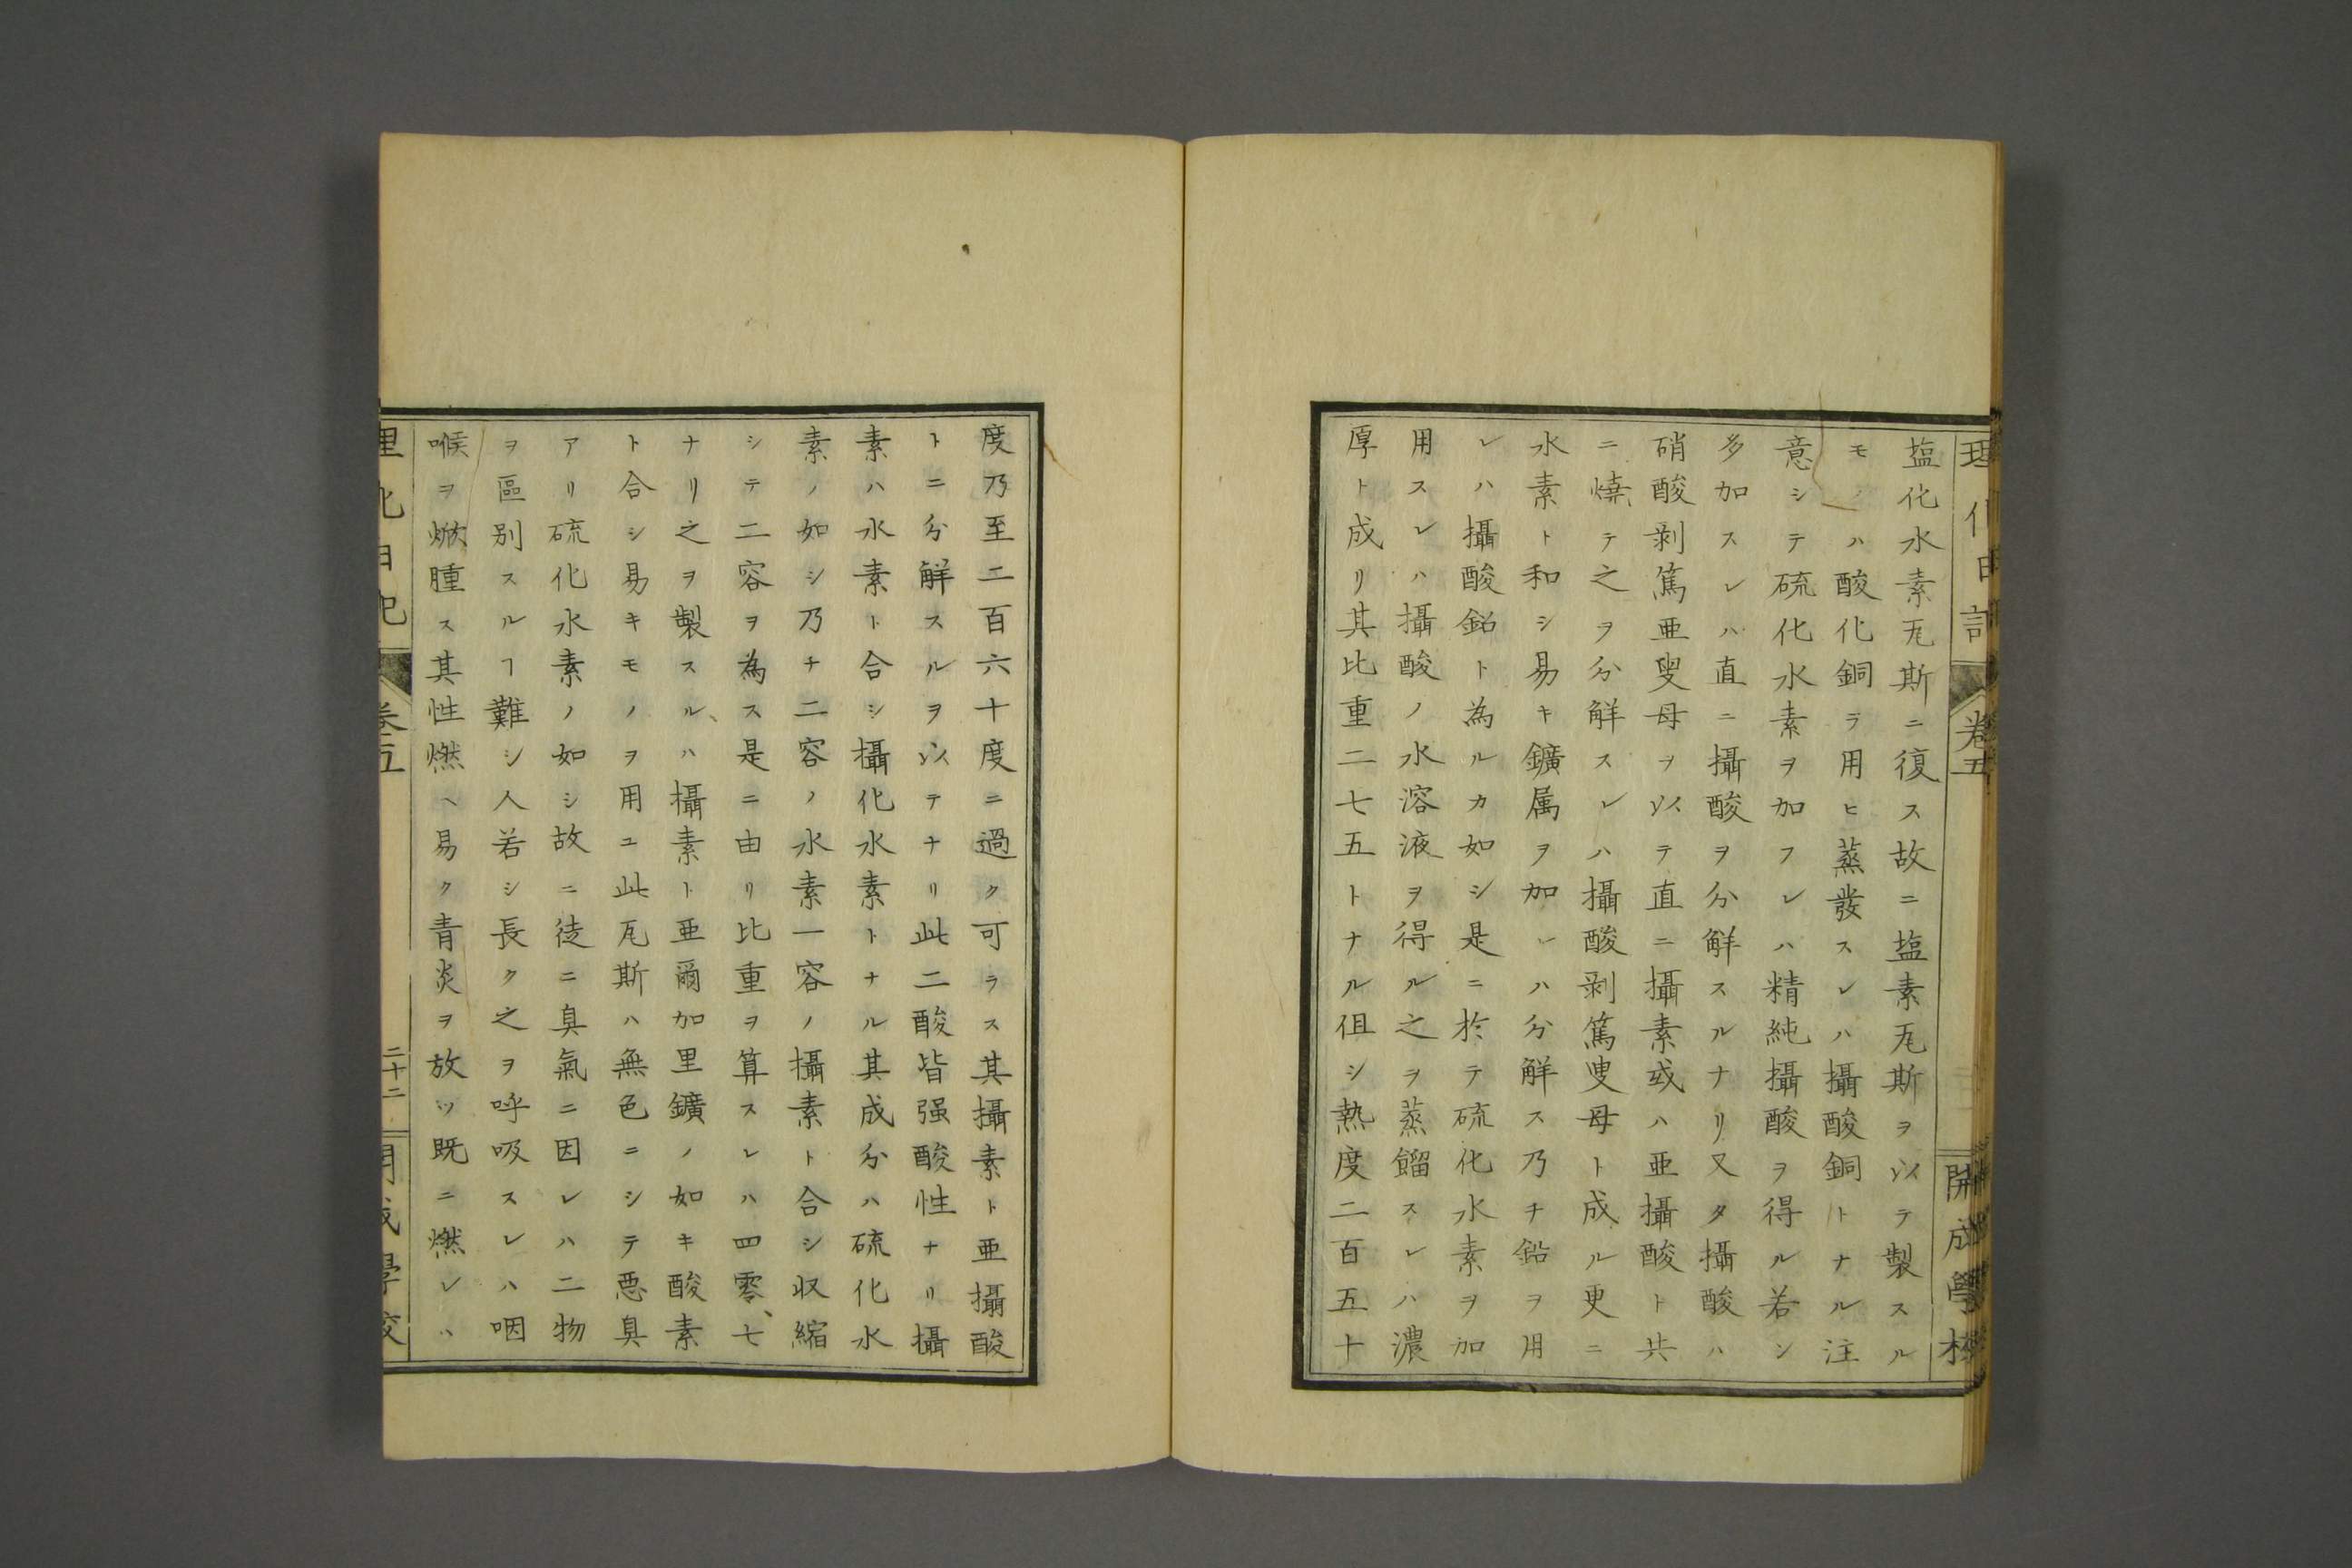 理化日記
卷五
開成學校
塩化水素瓦斯ニ復ス故ニ塩素瓦斯ヲ以テ製スル
モノハ酸化銅ヲ用ヒ蒸發スレハ攝酸銅トナル注
意シテ硫化水素ヲ加フレハ精純攝酸ヲ得ル若シ
多加スレハ直ニ攝酸ヲ分解スルナリ又タ攝酸ハ
硝酸剥篤亜叟母ヲ以テ直ニ攝素或ハ亜攝酸ト共
ニ燒テ之ヲ分解スレハ攝酸剥篤叟母ト成ル更ニ
水素ト和シ易キ鑛属ヲ加レハ分解ス乃チ鉛ヲ用
レハ攝酸鉛ト為ルカ如シ是ニ於テ硫化水素ヲ加
用スレハ攝酸ノ水溶液ヲ得ル之ヲ蒸餾スレハ濃
厚ト成リ其比重二七五トナル但シ熱度二百五十
度乃至二百六十度ニ過ク可ラス其攝素ト亜攝酸
トニ分解スルヲ以テナリ此二酸皆强酸性ナリ攝
素ハ水素ト合シ攝化水素トナル其成分ハ硫化水
素ノ如シ乃チ二容ノ水素一容ノ攝素ト合シ収縮
シテ二容ヲ為ス是ニ由リ比重ヲ算スレハ四零、七
ナリ之ヲ製スル、ハ攝素ト亜爾加里鑛ノ如キ酸素
ト合シ易キモノヲ用ユ此瓦斯ハ無色ニシテ悪臭
アリ硫化水素ノ如シ故ニ徒ニ臭氣ニ因レハ二物
ヲ區别スルヿ難シ人若シ長ク之ヲ呼吸スレハ咽
喉ヲ焮腫ス其性燃ヘ易ク青炎ヲ放ツ既ニ燃レハ
理化日記
卷五
二十二
開成學校